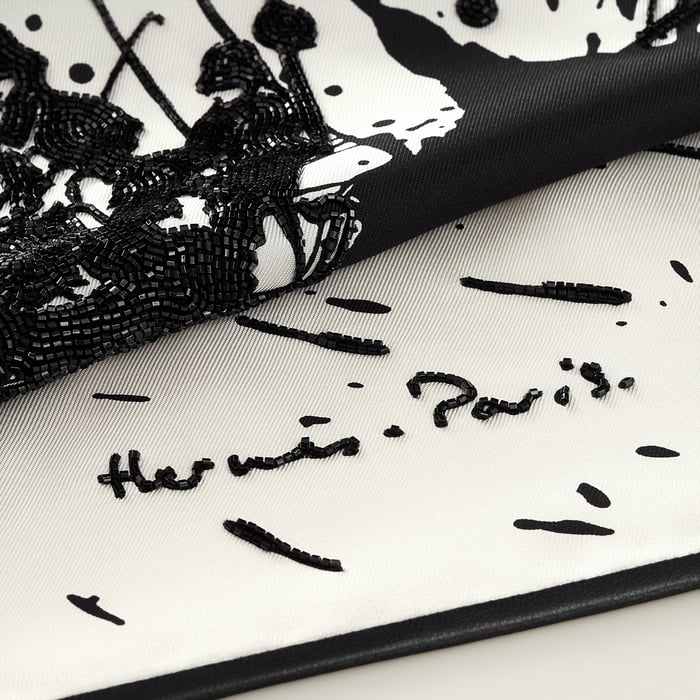 Hermès-Paris.